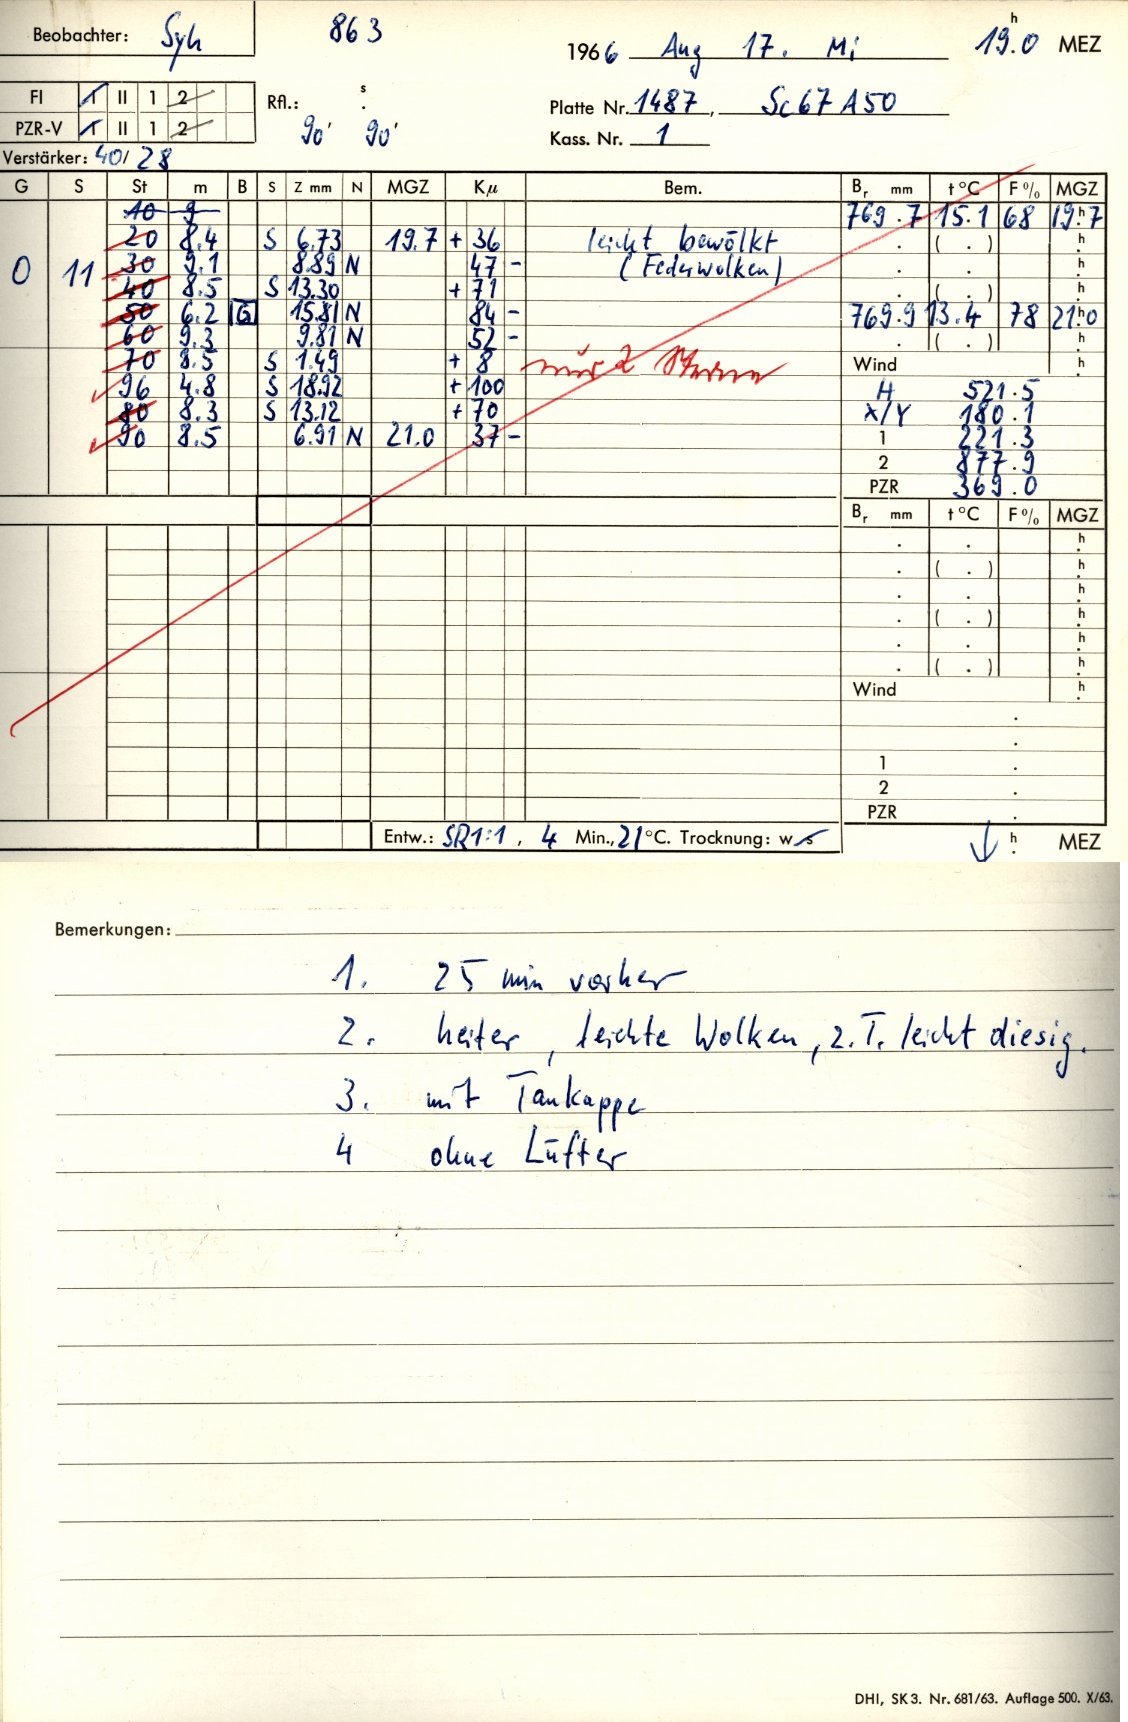 Beobachter: Syh 863 1966 Aug 17. Mi 19.0 h MEZ
FI I II 1 2 Rfl.: s . Platte Nr. 1487, Sc67A50
PZR-V I II 1 2 90' 90' Kass. Nr. 1
Verstärker: 40/28
G S St m B S Z mm N MGZ Kμ Bem. Br mm t °C F % MGZ
10 9 769.7 15.1 68 19h7
20 8.4 S 6.73 19.7 + 36 leicht bewölkt . ( . ) h
0 11 30 9.1 8.89 N 47 - (Federwolken) . . h
40 8.5 S 13.30 + 71 . ( . ) h
50 6.2 G 15.81 N 84 - 769.9 13.4 78 21h0
60 9.3 9.81 N 52 - . ( . ) h
70 8.5 S 1.49 + 8 nur 2 Sterne Wind h
96 4.8 S 18.92 + 100 H 521.5
80 8.3 S 13.12 + 70 X/Y 180.1
90 8.5 6.91 N 21.0 37 - 1 221.3
2 877.9
PZR 369.0
Br mm t °C F % MGZ
. . h
. ( . ) h
. . h
. ( . ) h
. . h
. ( . ) h
Wind h
.
.
1 .
2 .
PZR .
Entw.: SR1:1, 4 Min., 21 °C. Trocknung: w s ↓ h MEZ
Bemerkungen:
1. 25 min vorher
2. heiter, leichte Wolken, z.T. leicht diesig.
3. mit Taukappe
4 ohne Lüfter
DHI, SK 3. Nr. 681/63. Auflage 500. X/63.